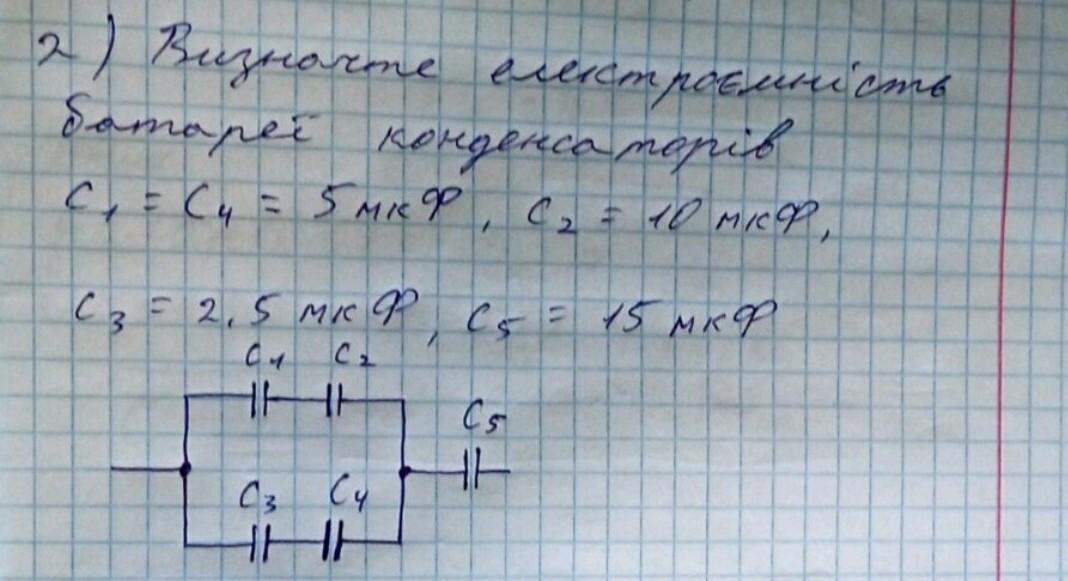 2) Визначте електроємність
батареї конденсаторів
C₁ = C₄ = 5 мкФ, C₂ = 10 мкФ,
C₃ = 2,5 мкФ, C₅ = 15 мкФ
C₁ C₂
C₅
C₃ C₄